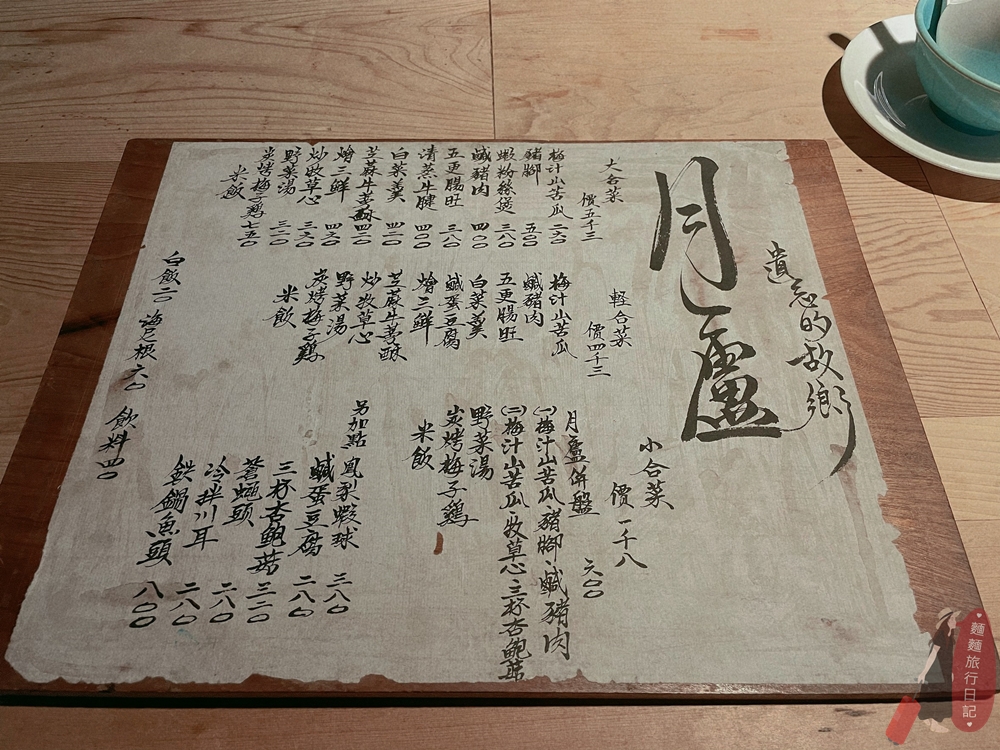 遺忘的故鄉
月盧
大合菜
價五千三
梅汁山苦瓜 二六〇
豬腳 五〇〇
蝦粉絲煲 三八〇
鹹豬肉 四〇〇
五更腸旺 三八〇
清蒸牛腱 四〇〇
白菜羹 四二〇
芝麻牛蒡酥 四二〇
燴三鮮
炒牧草心
野菜湯 三二〇
炭烤梅子鷄 七五〇
米飯
輕合菜
價四千三
梅汁山苦瓜
鹹豬肉
五更腸旺
白菜羹
鹹蛋豆腐
燴三鮮
芝麻牛蒡酥
炒牧草心
野菜湯
炭烤梅子鷄
米飯
小合菜
價一千八
月盧併盤 六〇〇
(一)梅汁山苦瓜、豬腳、鹹豬肉
(二)梅汁山苦瓜、牧草心、三杯杏鮑菇
野菜湯
炭烤梅子鷄
米飯
另加點
鳳梨蝦球 三八〇
鹹蛋豆腐 二八〇
三杯杏鮑菇 三二〇
蒼蠅頭 二八〇
冷拌川耳 二八〇
鉄鍋魚頭 八〇〇
白飯二〇 海根六〇 飲料四〇
麵麵旅行日記